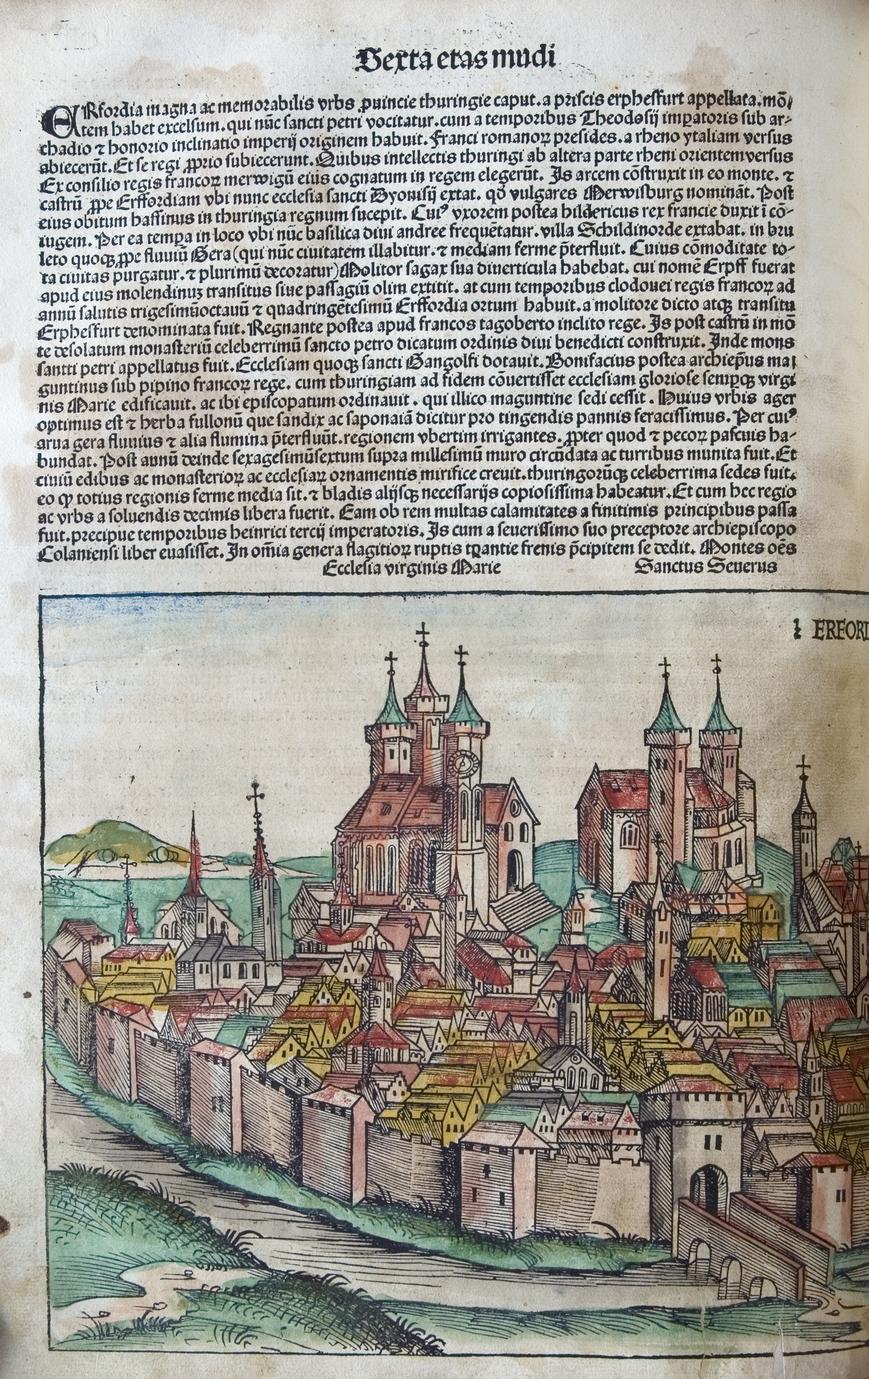 Sexta etas mũdi
ERfordia magna ac memorabilis vrbs ꝓuincie thuringie caput. a priscis erpheſfurt appellata. mõ/
tem habet excelsum. qui nũc sancti petri vocitatur. cum a temporibus Theodosij imꝑatoris sub ar-
chadio ⁊ honorio inclinatio imperij originem habuit. Franci romanoꝝ presides. a rheno ytaliam versus
abiecerũt. Et se regi ꝓprio subiecerunt. Quibus intellectis thuringi ab altera parte rheni orientem versus
Ex consilio regis francoꝝ merwigũ eius cognatum in regem elegerũt. Is arcem cõstruxit in eo monte. ⁊
castrũ ꝓpe Erffordiam vbi nunc ecclesia sancti Dyonisij extat. qđ vulgares Merwisburg nominãt. Post
eius obitum bassinus in thuringia regnum sucepit. Cuiꝰ vxorem postea hildericus rex francie duxit ĩ cõ-
iugem. Per ea temꝑa in loco vbi nũc basilica diui andree frequẽtatur. villa Schildinorde extabat. in bru
leto quoqꝫ ꝓpe fluuiũ Gera (qui nũc ciuitatem illabitur. ⁊ mediam ferme p̃terfluit. Cuius cõmoditate to-
ta ciuitas purgatur. ⁊ plurimũ decoratur) Molitor sagax sua diuerticula habebat. cui nomẽ Erpff fuerat
apud eius molendinuꝫ transitus siue passagiũ olim extitit. at cum temporibus clodouei regis francoꝝ ad
annũ salutis trigesimũoctauũ ⁊ quadringẽtesimũ Erffordia ortum habuit. a molitore dicto atqꝫ transitu
Erphesfurt denominata fuit. Regnante postea apud francos tagoberto inclito rege. Is post castrũ in mõ
te desolatum monasteriũ celeberrimũ sancto petro dicatum ordinis diui benedicti construxit. Inde mons
santti petri appellatus fuit. Ecclesiam quoqꝫ sancti Gangolfi dotauit. Bonifacius postea archiep̃us ma/
guntinus sub pipino francoꝝ rege. cum thuringiam ad fidem cõuertisset ecclesiam gloriose semꝑqꝫ virgi
nis Marie edificauit. ac ibi episcopatum ordinauit. qui illico maguntine sedi cessit. Huius vrbis ager
optimus est ⁊ herba fullonũ que sandix ac saponaiã dicitur pro tingendis pannis feracissimus. Per cuiꝰ
arua gera fluuius ⁊ alia flumina p̃terfluũt. regionem vbertim irrigantes. ꝓpter quod ⁊ pecoꝝ pascuis ha-
bundat. Post annũ deinde sexagesimũsextum supra millesimũ muro circũdata ac turribus munita fuit. Et
ciuiũ edibus ac monasterioꝝ ac ecclesiaꝝ ornamentis mirifice creuit. thuringorũqꝫ celeberrima sedes fuit.
eo ꝙ totius regionis ferme media sit. ⁊ bladis alijsqꝫ necessarijs copiosissima habeatur. Et cum hec regio
ac vrbs a soluendis decimis libera fuerit. Eam ob rem multas calamitates a finitimis principibus passa
fuit. precipue temporibus heinrici tercij imperatoris. Is cum a seuerissimo suo preceptore archiepiscopo
Coloniensi liber euasisset. In om̃ia genera flagitioꝝ ruptis tyrantie frenis p̃cipitem se dedit. Montes oẽs
Ecclesia virginis Marie Sanctus Seuerus
ERFORD